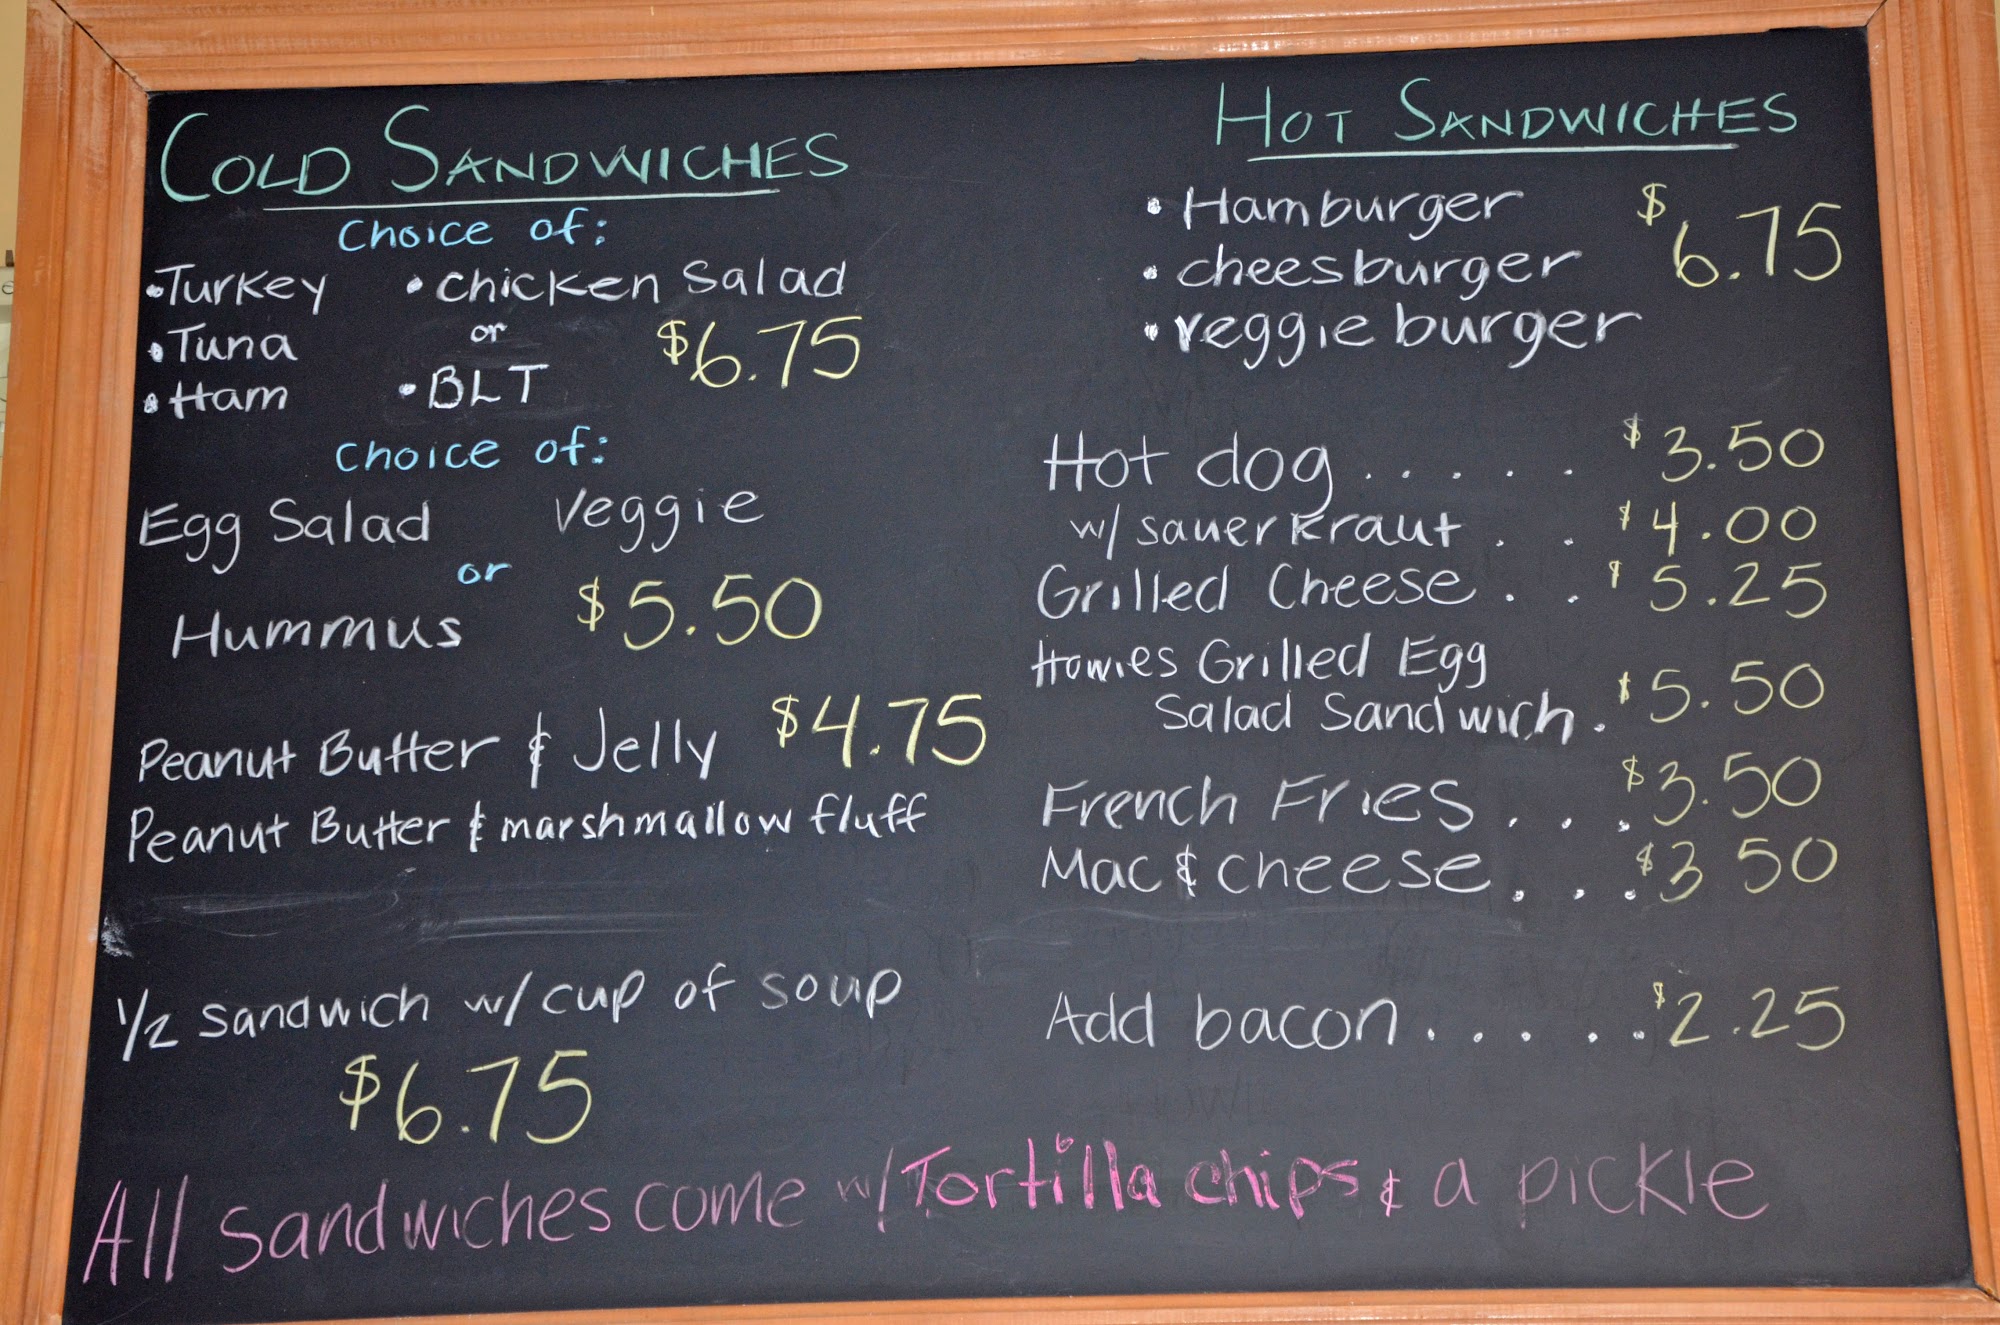 COLD SANDWICHES
Choice of:
• Turkey • Chicken Salad
• Tuna or $6.75
• Ham • BLT
Choice of:
Egg Salad Veggie
or
Hummus $5.50
Peanut Butter & Jelly $4.75
Peanut Butter & marshmallow fluff
1/2 sandwich w/ cup of soup
$6.75
HOT SANDWICHES
• Hamburger $6.75
• cheesburger
• veggie burger
Hot dog . . . . . $3.50
w/ sauerkraut . . $4.00
Grilled Cheese . . $5.25
Howies Grilled Egg
Salad Sandwich . $5.50
French Fries . . . $3.50
Mac & cheese . . . $3 50
Add bacon . . . . . $2.25
All sandwiches come w/ Tortilla chips & a pickle